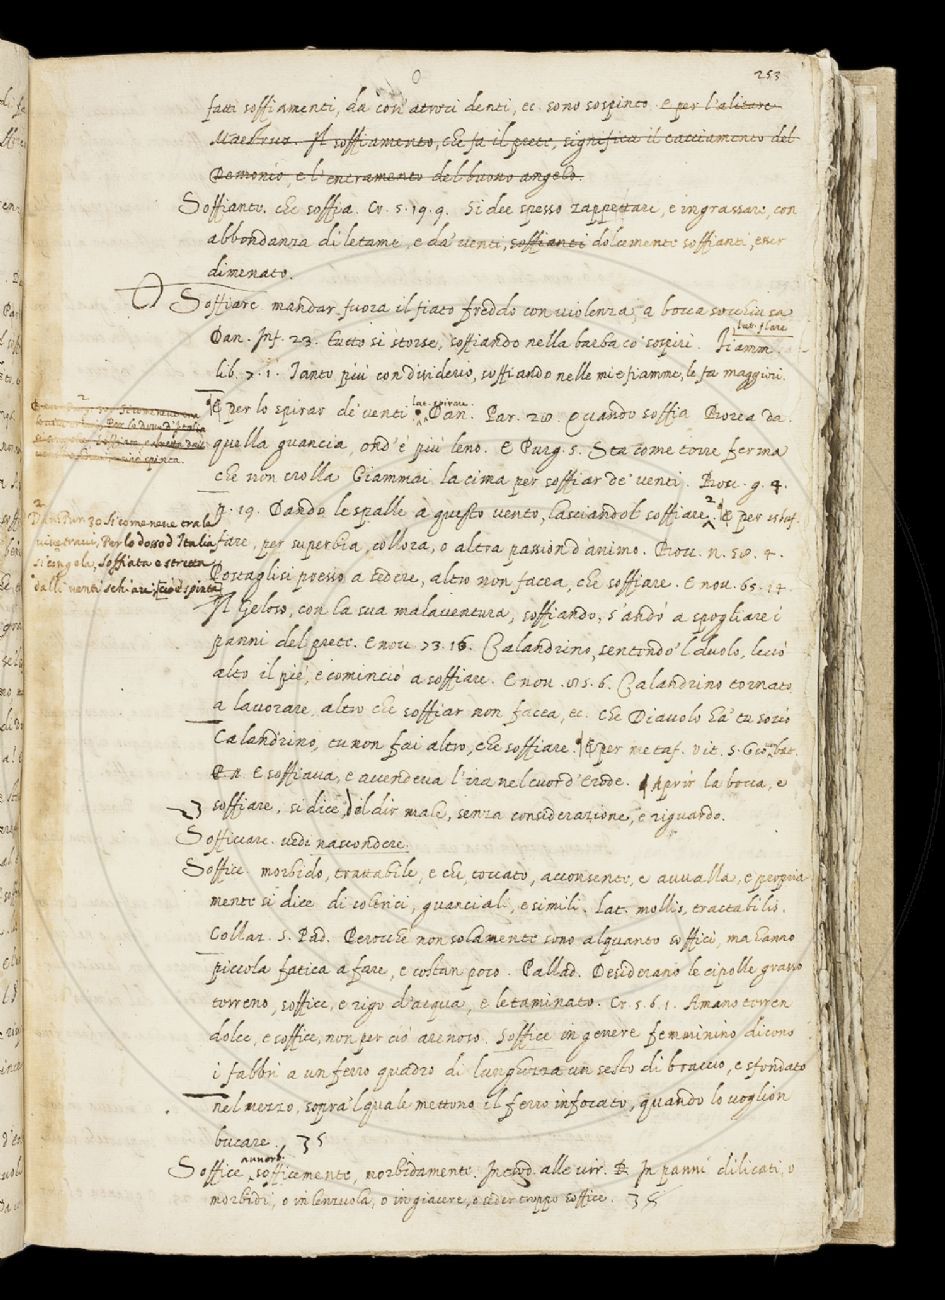 O
253
fatti soffiamenti, da così atroci denti, ec. sono sospinto. e per l'alitare
Maestruz. Il soffiamento, che fa il prete, significa il cacciamento del
Demonio, e l'entramento del buono angelo.
Soffiante. che soffia. Cr. 5. 19. 9. Si dee spesso zappettare, e ingrassare, con
abbondanza di letame, e da' venti, soffianti dolcemente soffianti, esser
dimenato.
Soffiare mandar fuora il fiato freddo con violenza, a bocca socchiusa
lat. flare
Dan. Inf. 23. Tutto si storse, soffiando nella barba co' sospiri. Fiamm.
lib. 7. 1. Tanto più con disiderio, soffiando nelle mie fiamme, le fa maggiori.
lat. spirare
E per lo spirar de' venti Dan. Par. 28. Quando soffia Borea da
quella guancia, ond' è più leno. E Purg. 5. Sta come torre ferma
che non crolla Giammai la cima per soffiar de' venti. Bocc. g. 4.
p. 19. Dando le spalle a questo vento, lasciandol soffiare. 2 E per isbuf
fare, per superbia, collora, o altra passion d'animo. Bocc. n. 58. 4.
Postaglisi presso a sedere, altro non facea, che soffiare. E nou. 65. 14.
Il Geloso, con la sua malaventura, soffiando, s'andò a spogliare i
panni del prete. E nou. 73. 16. Calandrino, sentendo 'l duolo, levò
alto il piè, e cominciò a soffiare. E nou. 85. 6. Calandrino tornato
a lavorare, altro che soffiar non facea, ec. che Diavolo ha' tu sozio
Calandrino, tu non fai altro, che soffiare. E per metaf. Vit. S. Gio. bat.
E soffiava, e accendeva l'ira nel cuor d'Erode. Aprir la bocca, e
soffiare, si dice, del dir male, senza considerazione, e riguardo.
Sofficcare. vedi nascondere.
Soffice morbido, trattabile, e che, toccato, acconsente, e avvalla, e propria
mente si dice di coltrici, guanciali, e simili. Lat. mollis, tractabilis.
Collaz. S. Pad. Perocchè non solamente sono alquanto soffici, ma hanno
piccola fatica a fare, e costan poco. Pallad. Desiderano le cipolle grasso
terreno, soffice, e rigo d'acqua, e letaminato. Cr. 5. 6. 1. Amano terren
dolce, e soffice, non per ciò arenoso. Soffice in genere femminino dicono
i fabbri a un ferro quadro di lunghezza un sesto di braccio, e sfondato
nel mezzo, sopra 'l quale mettono il ferro infocato, quando lo voglion
bucare.
avverb.
Soffice, sofficemente, morbidamente. Introd. alle virt. In panni dilicati, o
morbidi, o in lenzuola, o in giacere, o seder troppo soffice.
2
Dan. Pur. 30 Sì come neve tra le
vive travi, Per lo dosso d'Italia
si congela, Soffiata e stretta
dalli venti schiavi, cioè spinta